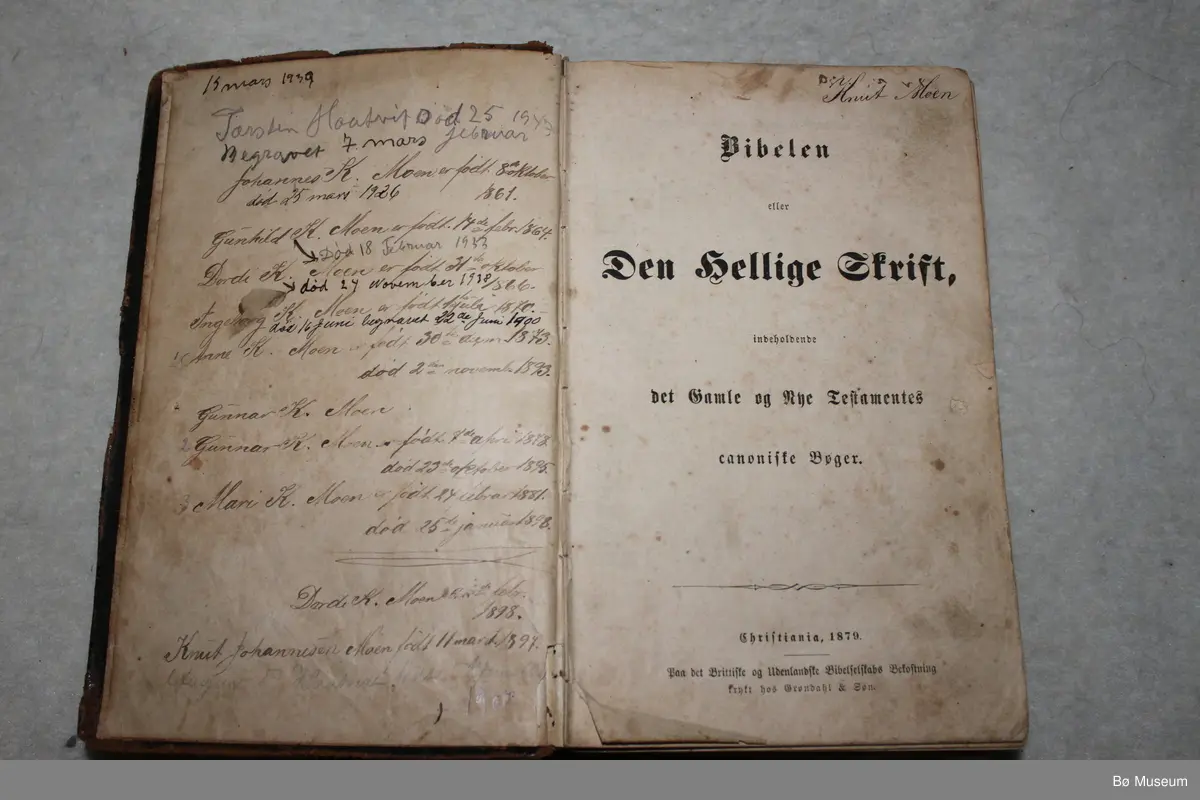 15 mars 1939
Torsten Haatvit Død 25 februar
Begravet 7 mars
Johannes K. Moen er født 8de oktober
1861.
død 25 mars 1926
Gunhild K. Moen er født 14de febr. 1864.
Død 18 Februar 1933
Dorde K. Moen er født 31te oktober
1866.
død 27 November 1938
Ingeborg K. Moen er født 1870.
død 16 Juni begravet 22de Juni 1900
1 Anne K. Moen er født 30te 1873.
død 2den novemb. 1893.
Gunnar K. Moen
2 Gunnar K. Moen er født 7de april 1878.
død 23de oktober 1895.
3 Mari K. Moen er født 27 februar 1881.
død 25te januar 1898.
Dorde K. Moen febr.
1898.
Knut Johannesen Moen født 11 mars 1897.
Knut Moen
Bibelen
eller
Den Hellige Skrift,
indeholdende
det Gamle og Nye Testamentes
canoniske Bøger.
Christiania, 1879.
Paa det Brittiske og Udenlandske Bibelselskabs Bekostning
trykt hos Grøndahl & Søn.
Bø Museum